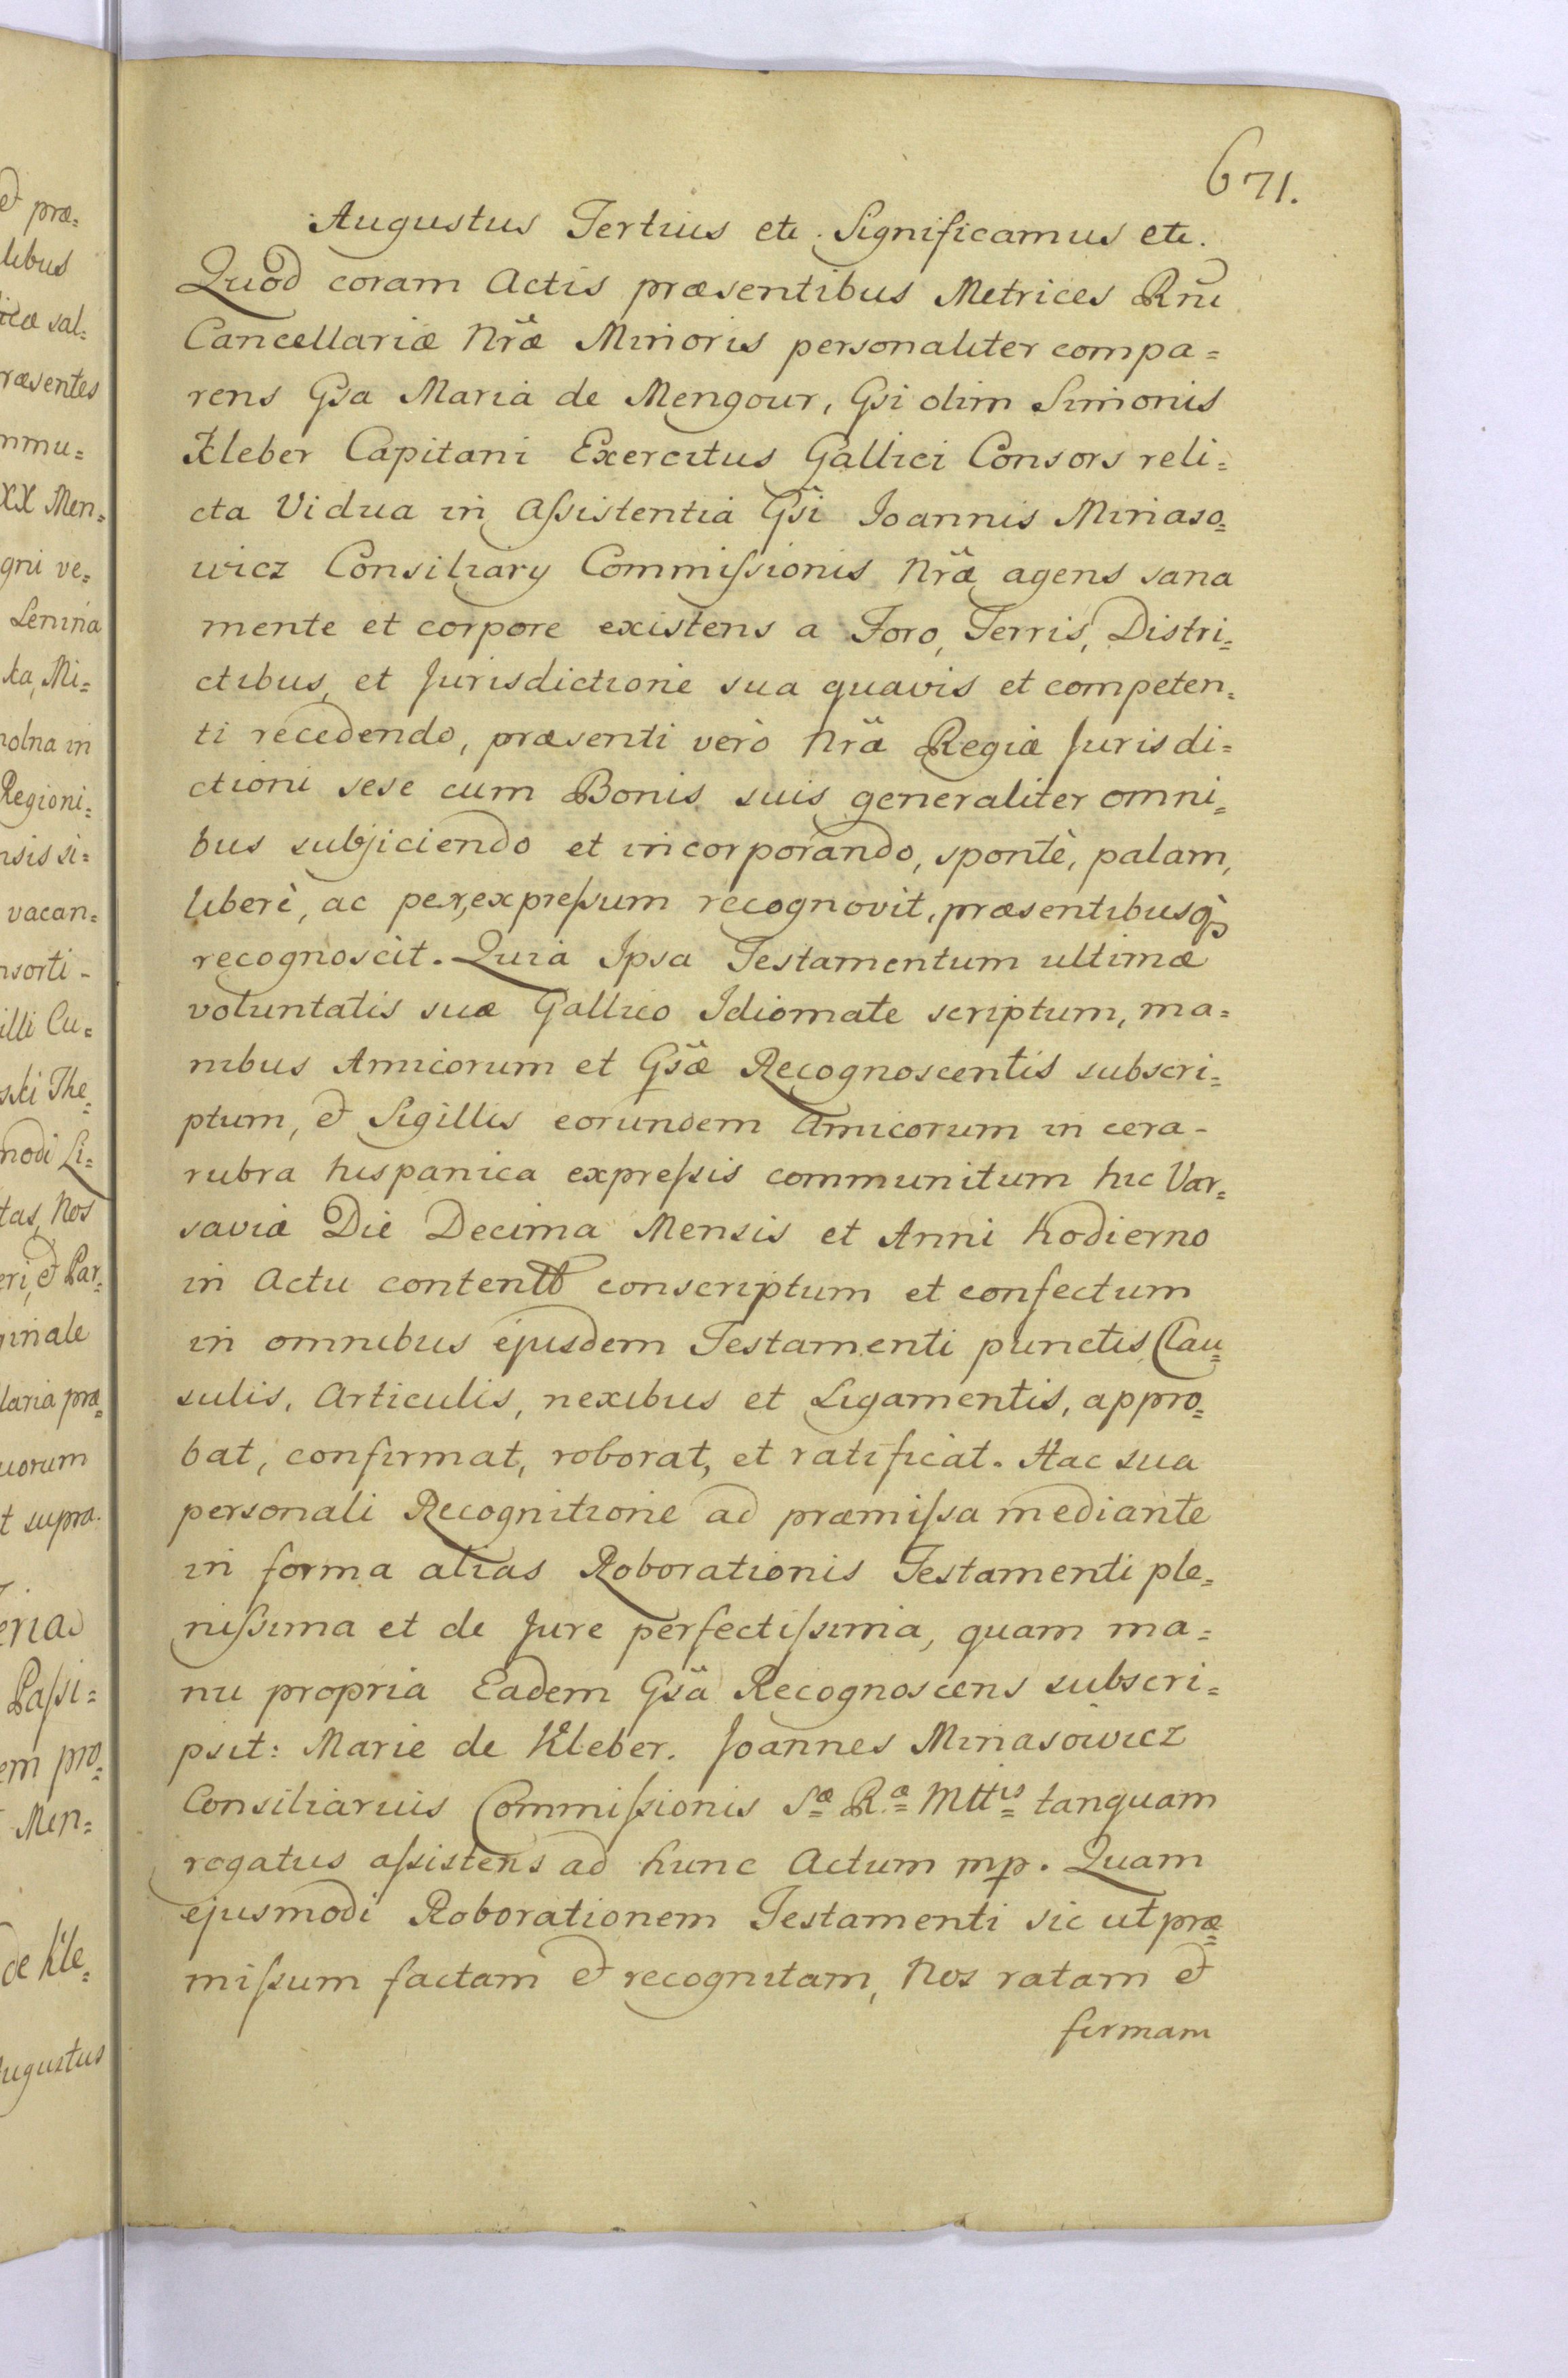 671.
Augustus Tertius etc. Significamus etc.
Quod coram Actis præsentibus Metrices Rñi
Cancellariæ Nræ Minoris personaliter compa=
rens Gsa Maria de Mengour, Gsi olim Simonis
Kleber Capitani Exercitus Gallici Consors reli=
cta Vidua in Aſsistentia Gsi Joannis Minaso=
wicz Consiliary Commiſsionis Nræ agens sana
mente et corpore existens a Foro, Terris, Distri=
ctibus, et Jurisdictione sua quavis et competen=
ti recedendo, præsenti verò Nræ Regiæ Jurisdi=
ctioni sese cum Bonis suis generaliter omni=
bus subjiciendo et incorporando, spontè, palam,
liberè, ac per, expreſsum recognovit, præsentibusq;
recognoscit. Quia Ipsa Testamentum ultimæ
voluntatis suæ Gallico Idiomate scriptum, ma=
nibus Amicorum et Gsæ Recognoscentis subscri=
ptum, et Sigillis eorundem Amicorum in cera-
rubra hispanica expreſsis communitum hic Var=
saviæ Die Decima Mensis et Anni hodierno
in Actu contentt conscriptum et confectum
in omnibus ejusdem Testamenti punctis, Clau=
sulis, Articulis, nexibus et Ligamentis, appro=
bat, confirmat, roborat, et ratificat. Hac sua
personali Recognitione ad præmiſsa mediante
in forma alias Roborationis Testamenti ple=
niſsima et de Jure perfectiſsima, quam ma=
nu propria Eadem Gsa Recognoscens subscri=
psit: Marie de Kleber. Joannes Minasowicz
Consiliarius Commiſsionis Sæ Ræ Mttis tanquam
rogatus aſsistens ad hunc Actum mp. Quam
ejusmodi Roborationem Testamenti sic ut præ=
miſsum factam et recognitam, Nos ratam et
firmam